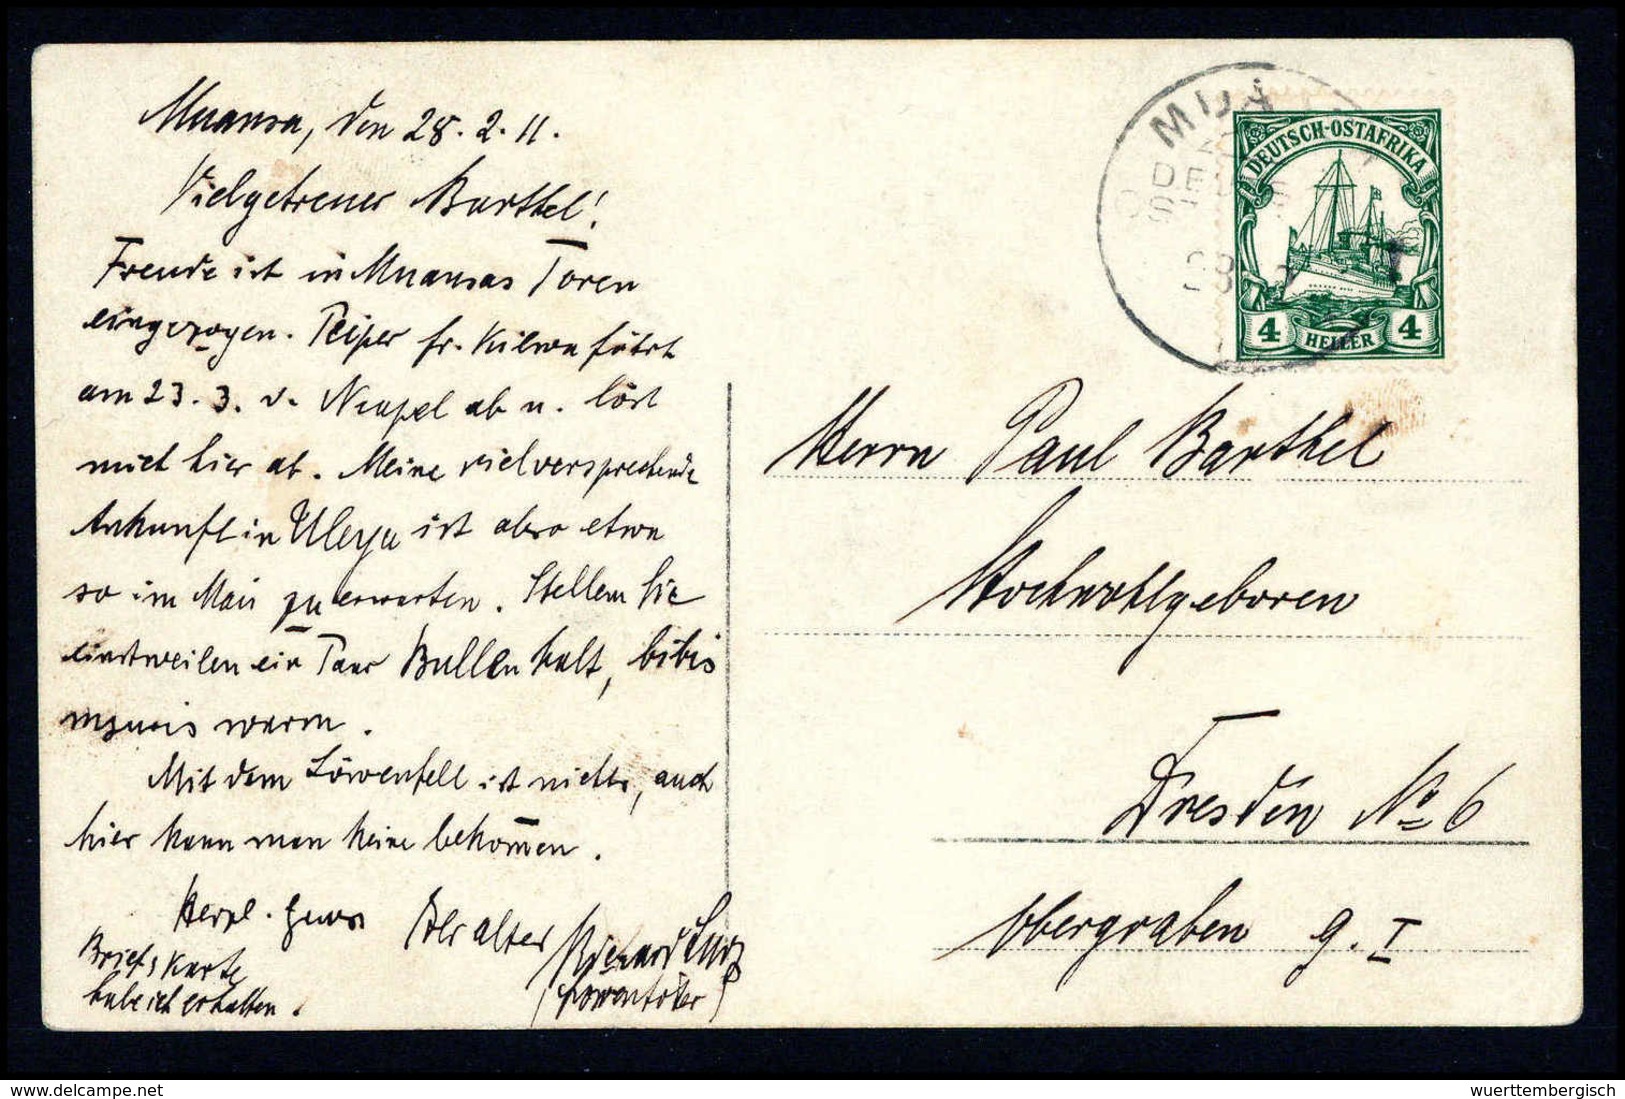 Muansa, den 28.2.11.
Vielgetreuer Barthel!
Freude ist in Muansas Toren
eingezogen. Peiper fr. Kilwa fährt
am 23.3. v. Neapel ab u. löst
mich hier ab. Meine vielversprechende
Ankunft in Uleya ist also etwa
so im Mai zu erwarten. Stellen Sie
einstweilen ein Paar Bullen kalt, bibis
warm.
Mit dem Löwenfell ist nichts, auch
hier kann man keine bekom̄en.
Herzl. Gruss Ihr alter
Richard
Briefs Karte
habe ich erhalten.
MUA
DEUTSCH-OSTAFRIKA
4 HELLER 4
Herrn Paul Barthel
Hochwohlgeboren
Dresden No 6
Obergraben 9. I
delcampe.net
wuerttembergisch